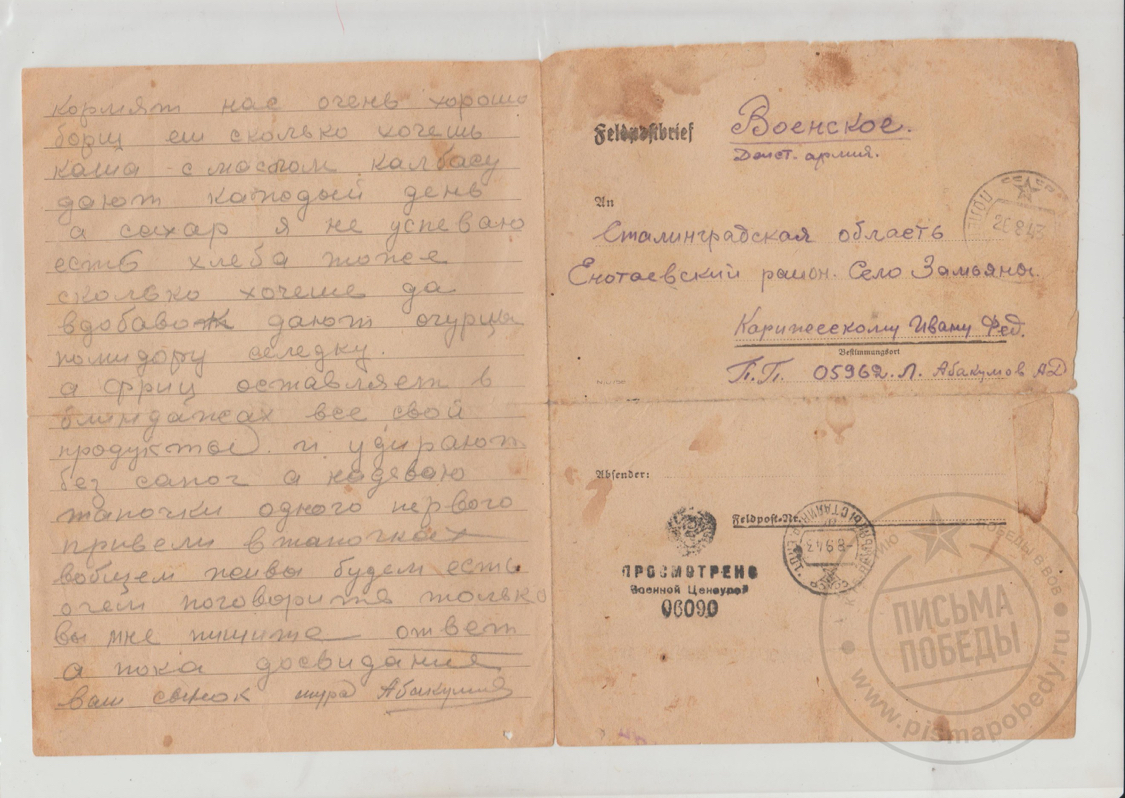 кормят нас очень хорошо
борщ еш сколько хочешь
каша с маслом калбасу
дают каждый день
а сахар я не успеваю
есть хлеба тоже
сколько хочеше да
вдобавок дают огурцы
помидору селедку.
а фриц оставляет в
блиндажах все свой
продукты и удирают
без сапог а надеваю
тапочки одного первого
привели в тапочках
вобщем живы будем есть
очем поговорите только
вы мне пишите ответ
а пока досвидания
ваш сынок шура Абакумов
Feldpostbrief
Военское.
Дейст. армия.
An
Сталинградская область
Енотаевский район. Село Замьяны.
Ивану Фед.
Bestimmungsort
П.П. 05962.Л. Абакумов АД
20 8 43
Absender:
Feldpost-Nr.
8.9.43
ПРОСМОТРЕНО
Военной Цензурой
06090
ПИСЬМА
ПОБЕДЫ
www.pismapobedy.ru